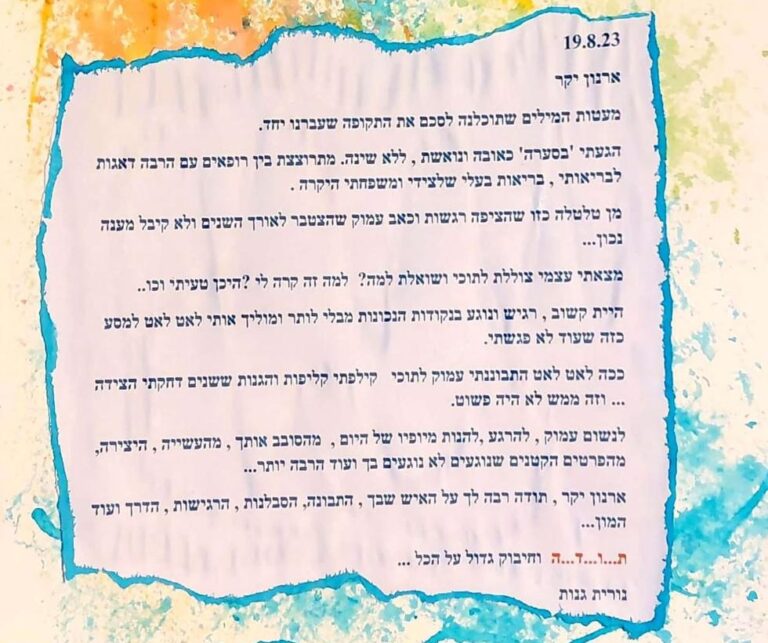 19.8.23
ארנון יקר
מעטות המילים שתוכלנה לסכם את התקופה שעברנו יחד.
הגעתי 'בסערה' כאובה ונואשת , ללא שינה. מתרוצצת בין רופאים עם הרבה דאגות
לבריאותי , בריאות בעלי שלצידי ומשפחתי היקרה .
מן טלטלה כזו שהציפה רגשות וכאב עמוק שהצטבר לאורך השנים ולא קיבל מענה
נכון...
מצאתי עצמי צוללת לתוכי ושואלת למה? למה זה קרה לי ?היכן טעיתי וכו..
היית קשוב , רגיש ונוגע בנקודות הנכונות מבלי לותר ומוליך אותי לאט לאט למסע
כזה שעוד לא פגשתי.
ככה לאט לאט התבוננתי עמוק לתוכי קילפתי קליפות והגנות ששנים דחקתי הצידה
... וזה ממש לא היה פשוט.
לנשום עמוק , להרגע ,להנות מיופיו של היום , מהסובב אותך , מהעשייה , היצירה,
מהפרטים הקטנים שנוגעים לא נוגעים בך ועוד הרבה יותר...
ארנון יקר , תודה רבה לך על האיש שבך , התבונה, הסבלנות , הרגישות , הדרך ועוד
המון...
ת...ו...ד...ה וחיבוק גדול על הכל ...
נורית גנות